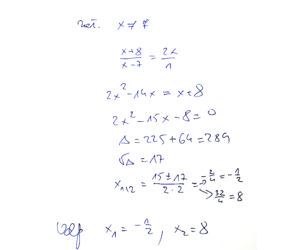 x ≠ 7
x+8/x-7 = 2x/1
2x² - 14x = x + 8
2x² - 15x - 8 = 0
Δ = 225 + 64 = 289
√Δ = 17
x₁,₂ = 15 ± 17 / 2·2 = → -2/4 = -1/2
→ 32/4 = 8
x₁ = -1/2 , x₂ = 8